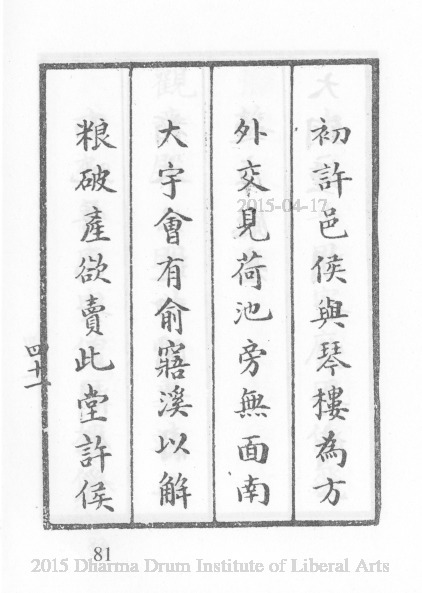 初許邑侯與琴樓為方
外交見荷池旁無面南
大宇會有俞寤溪以解
粮破產欲賣此堂許侯
四十一
81
2015-04-17
2015 Dharma Drum Institute of Liberal Arts